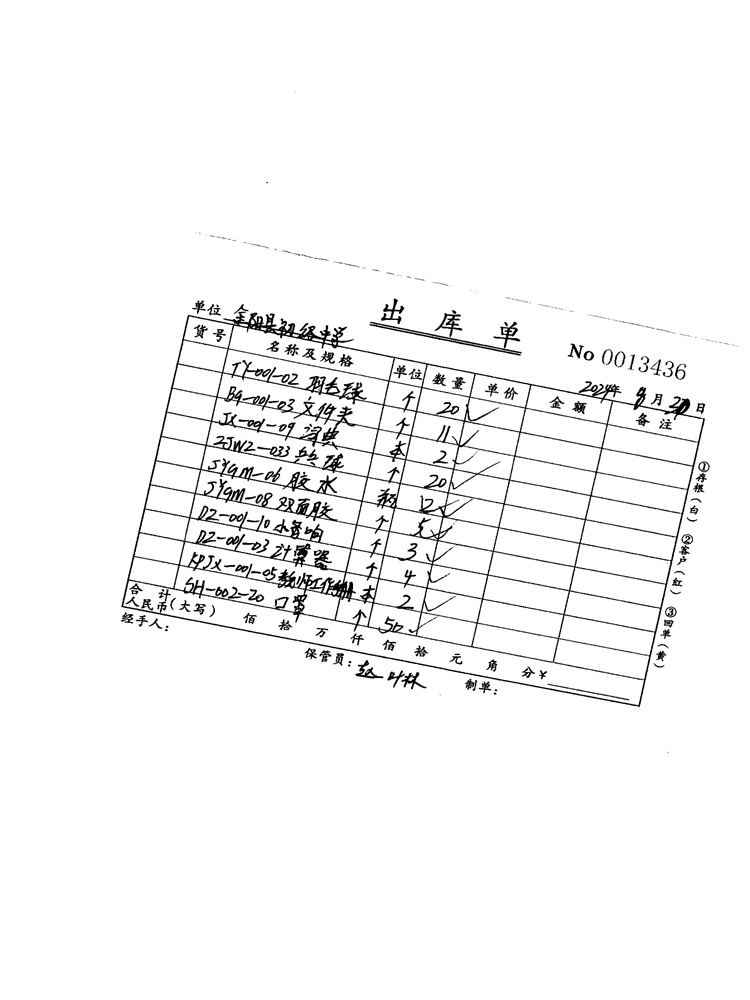 出库单
No 0013436
单位 金阳县初级中学
2024年 8月 20日
货号 名称及规格 单位 数量 单价 金额 备注
TY-001-02 羽毛球 个 20 ✓
BG-001-03 文件夹 个 11 ✓
JX-001-09 词典 本 2 ✓
ZJWZ-033 乒乓球 个 20 ✓
SYGM-06 胶水 瓶 12 ✓
SYGM-08 双面胶 个 5 ✓
DZ-001-10 小音响 个 3 ✓
DZ-001-03 计算器 个 4 ✓
KPJX-001-05 教师工作手册 本 2 ✓
SH-002-20 口罩 个 50 ✓
合计
人民币(大写) 佰 拾 万 仟 佰 拾 元 角 分 ¥
经手人: 保管员: 赵叶林 制单:
①存根(白) ②客户(红) ③回单(黄)